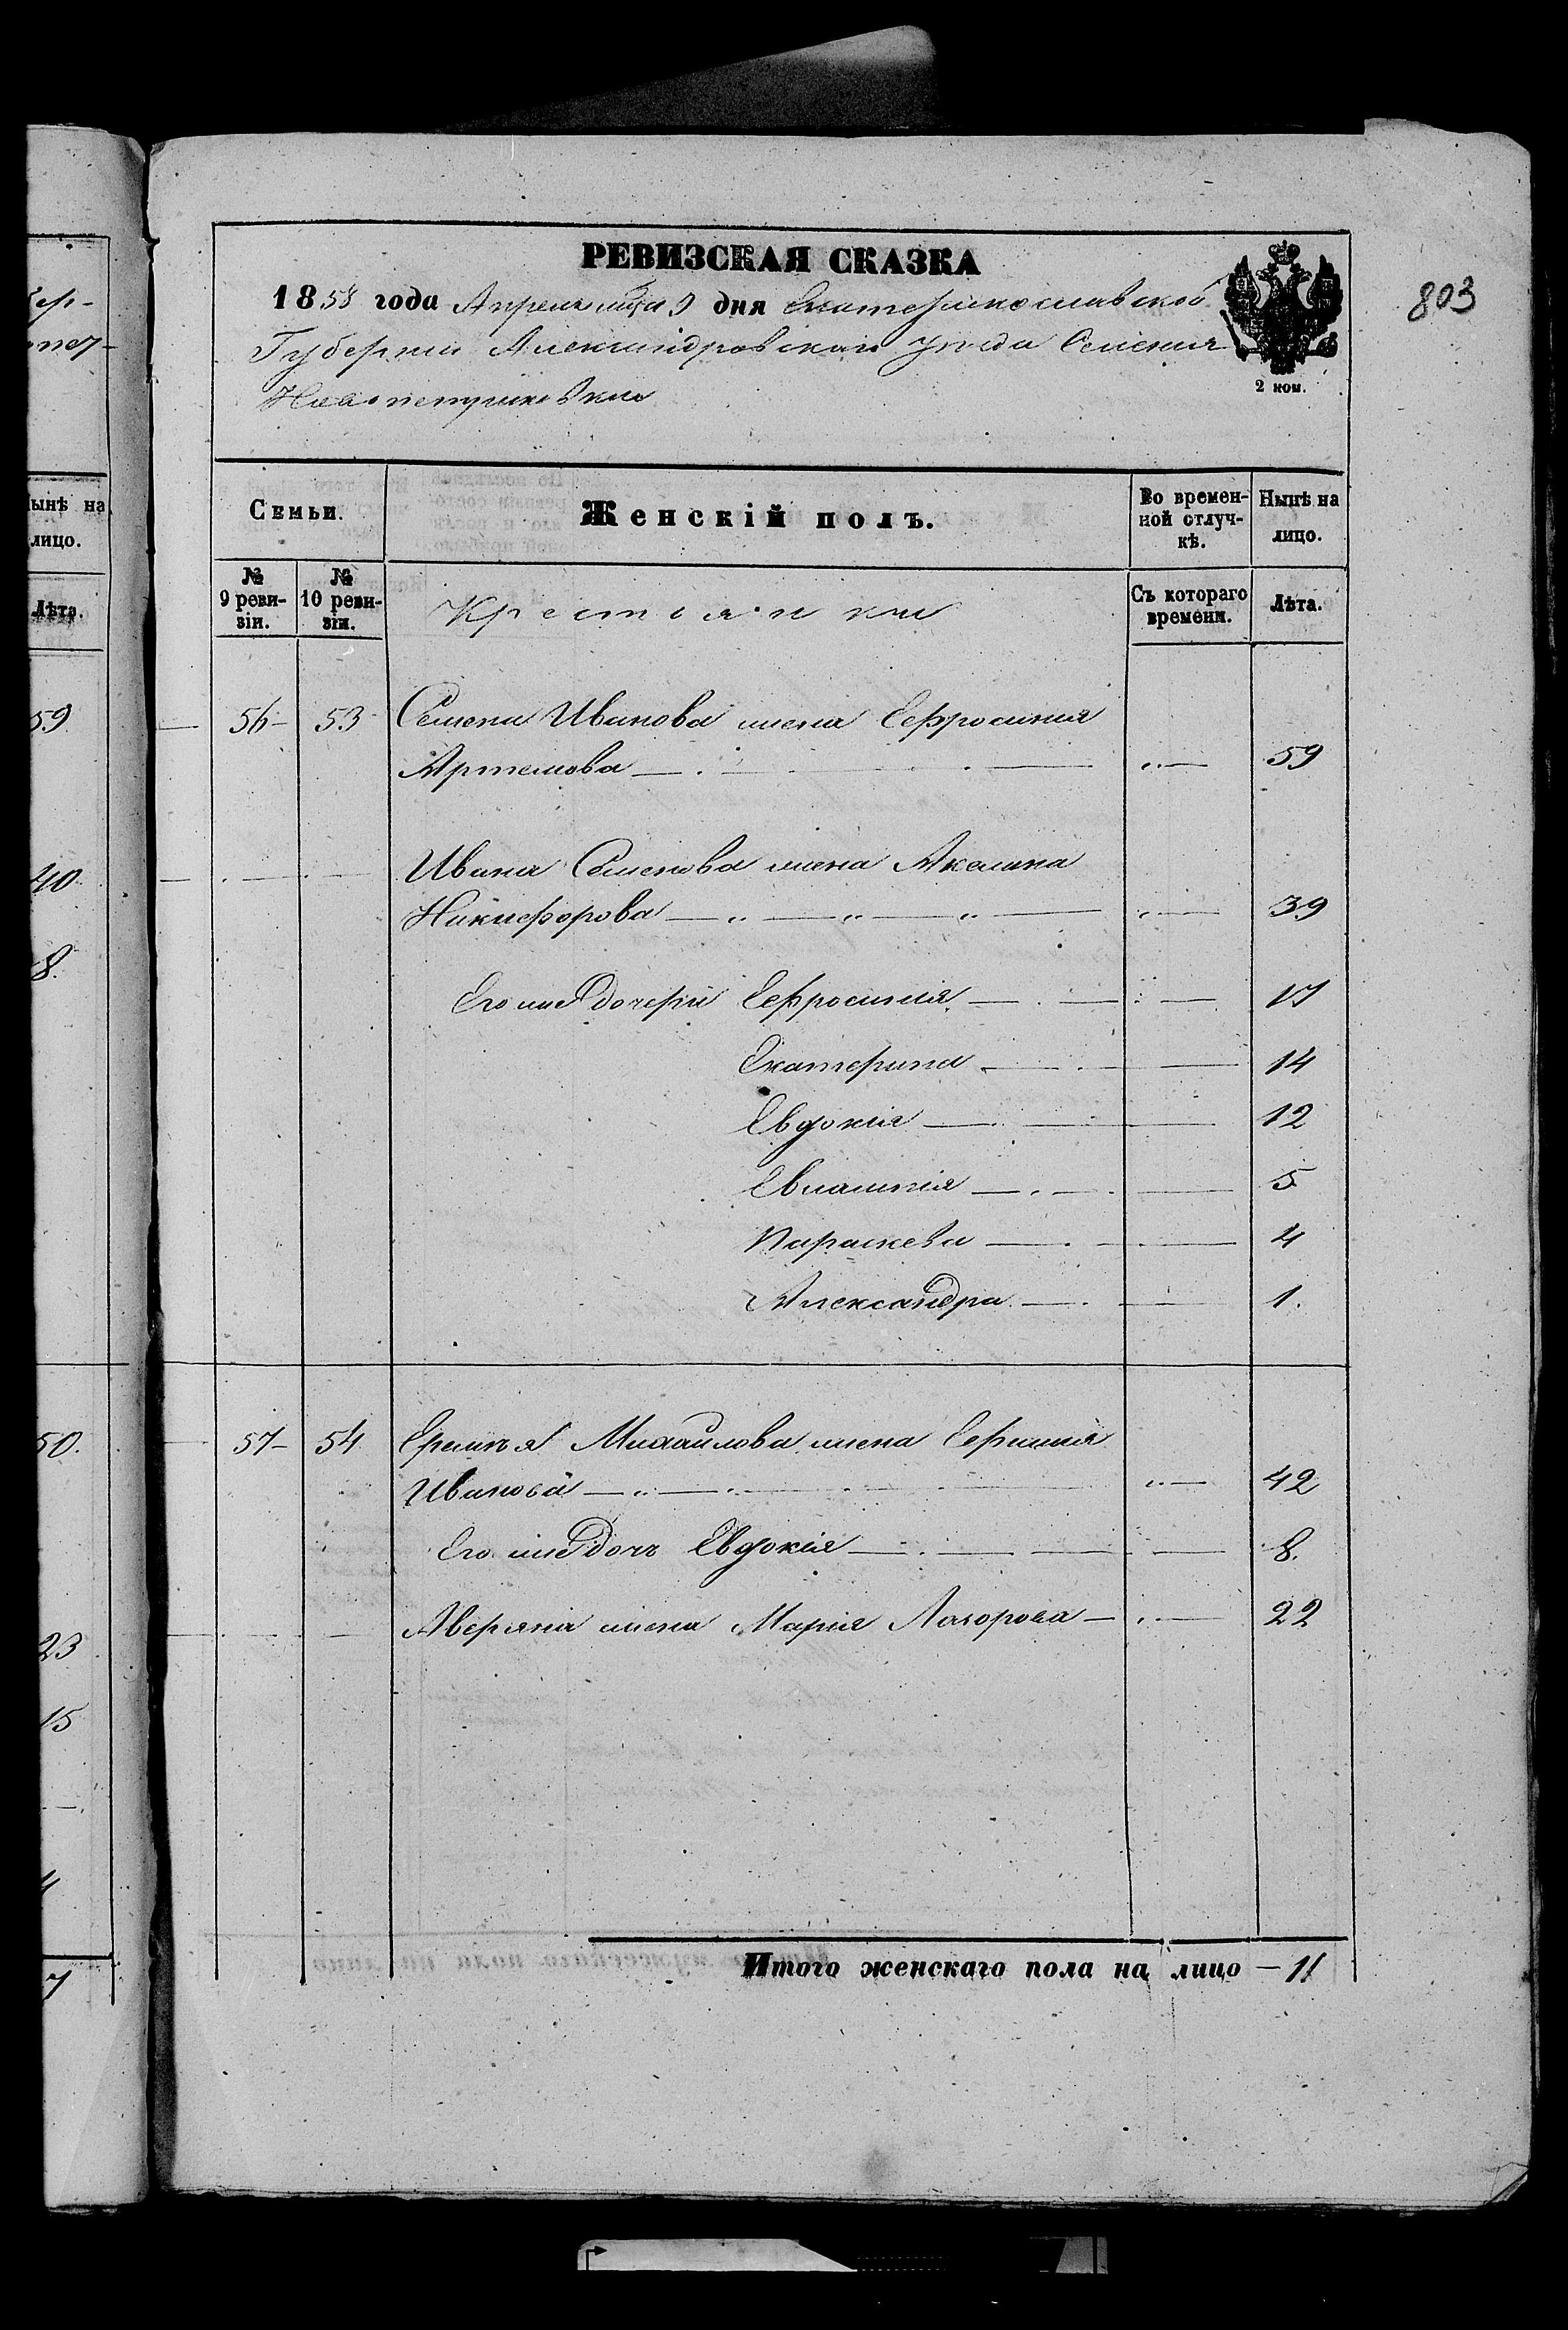 РЕВИЗСКАЯ СКАЗКА
1858 года Апреля мца 9 дня Екатеринославской
Губернии Александровскаго уезда Селения
2 коп.
803
Семьи.
Женскій полъ.
Во времен-
ной отлуч-
кѣ.
Нынѣ на
лицо.
№
9 реви-
зіи.
№
10 реви-
зіи.
Крестьянки
Съ котораго
времени.
Лѣта.
56 – 53 Семена Иванова жена Ефросиния
Артемова — 59
Ивана Семенова жена Акелина
Никифорова — 39
Его же дочери Ефросиния — 17
Екатерина — 14
Евдокия — 12
5
Параскева — 4
Александра — 1.
57 – 54 Еремея Михайлова жена
Иванова — 42
Его же дочь Евдокия — 8.
Аверяна жена Мария — 22
Итого женскаго пола на лицо – 11
ынѣ на
лицо.
Лѣта.
59
40
8.
50.
23
15
4
7